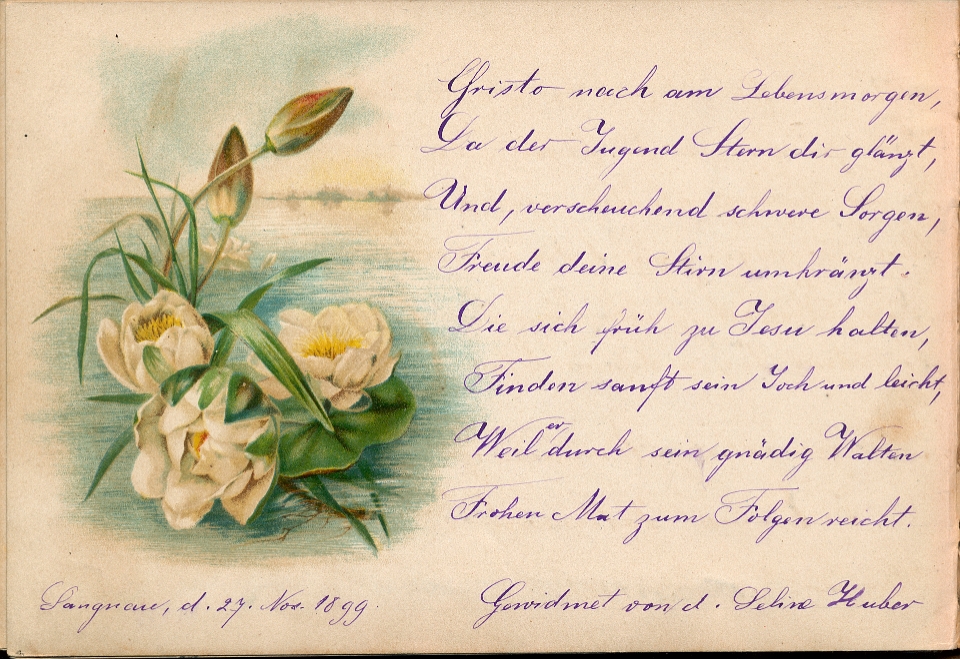 Christo nach am Lebensmorgen,
Da der Jugend Stern dir glänzt,
Und, verscheuchend schwere Sorgen,
Freude deine Stirn umkränzt.
Die sich früh zu Jesu halten,
Finden sanft sein Joch und leicht,
Weil er durch sein gnädig Walten
Frohen Mut zum Folgen reicht.
Langnau, d. 27. Nov. 1899.
Gewidmet von d. Seline Huber